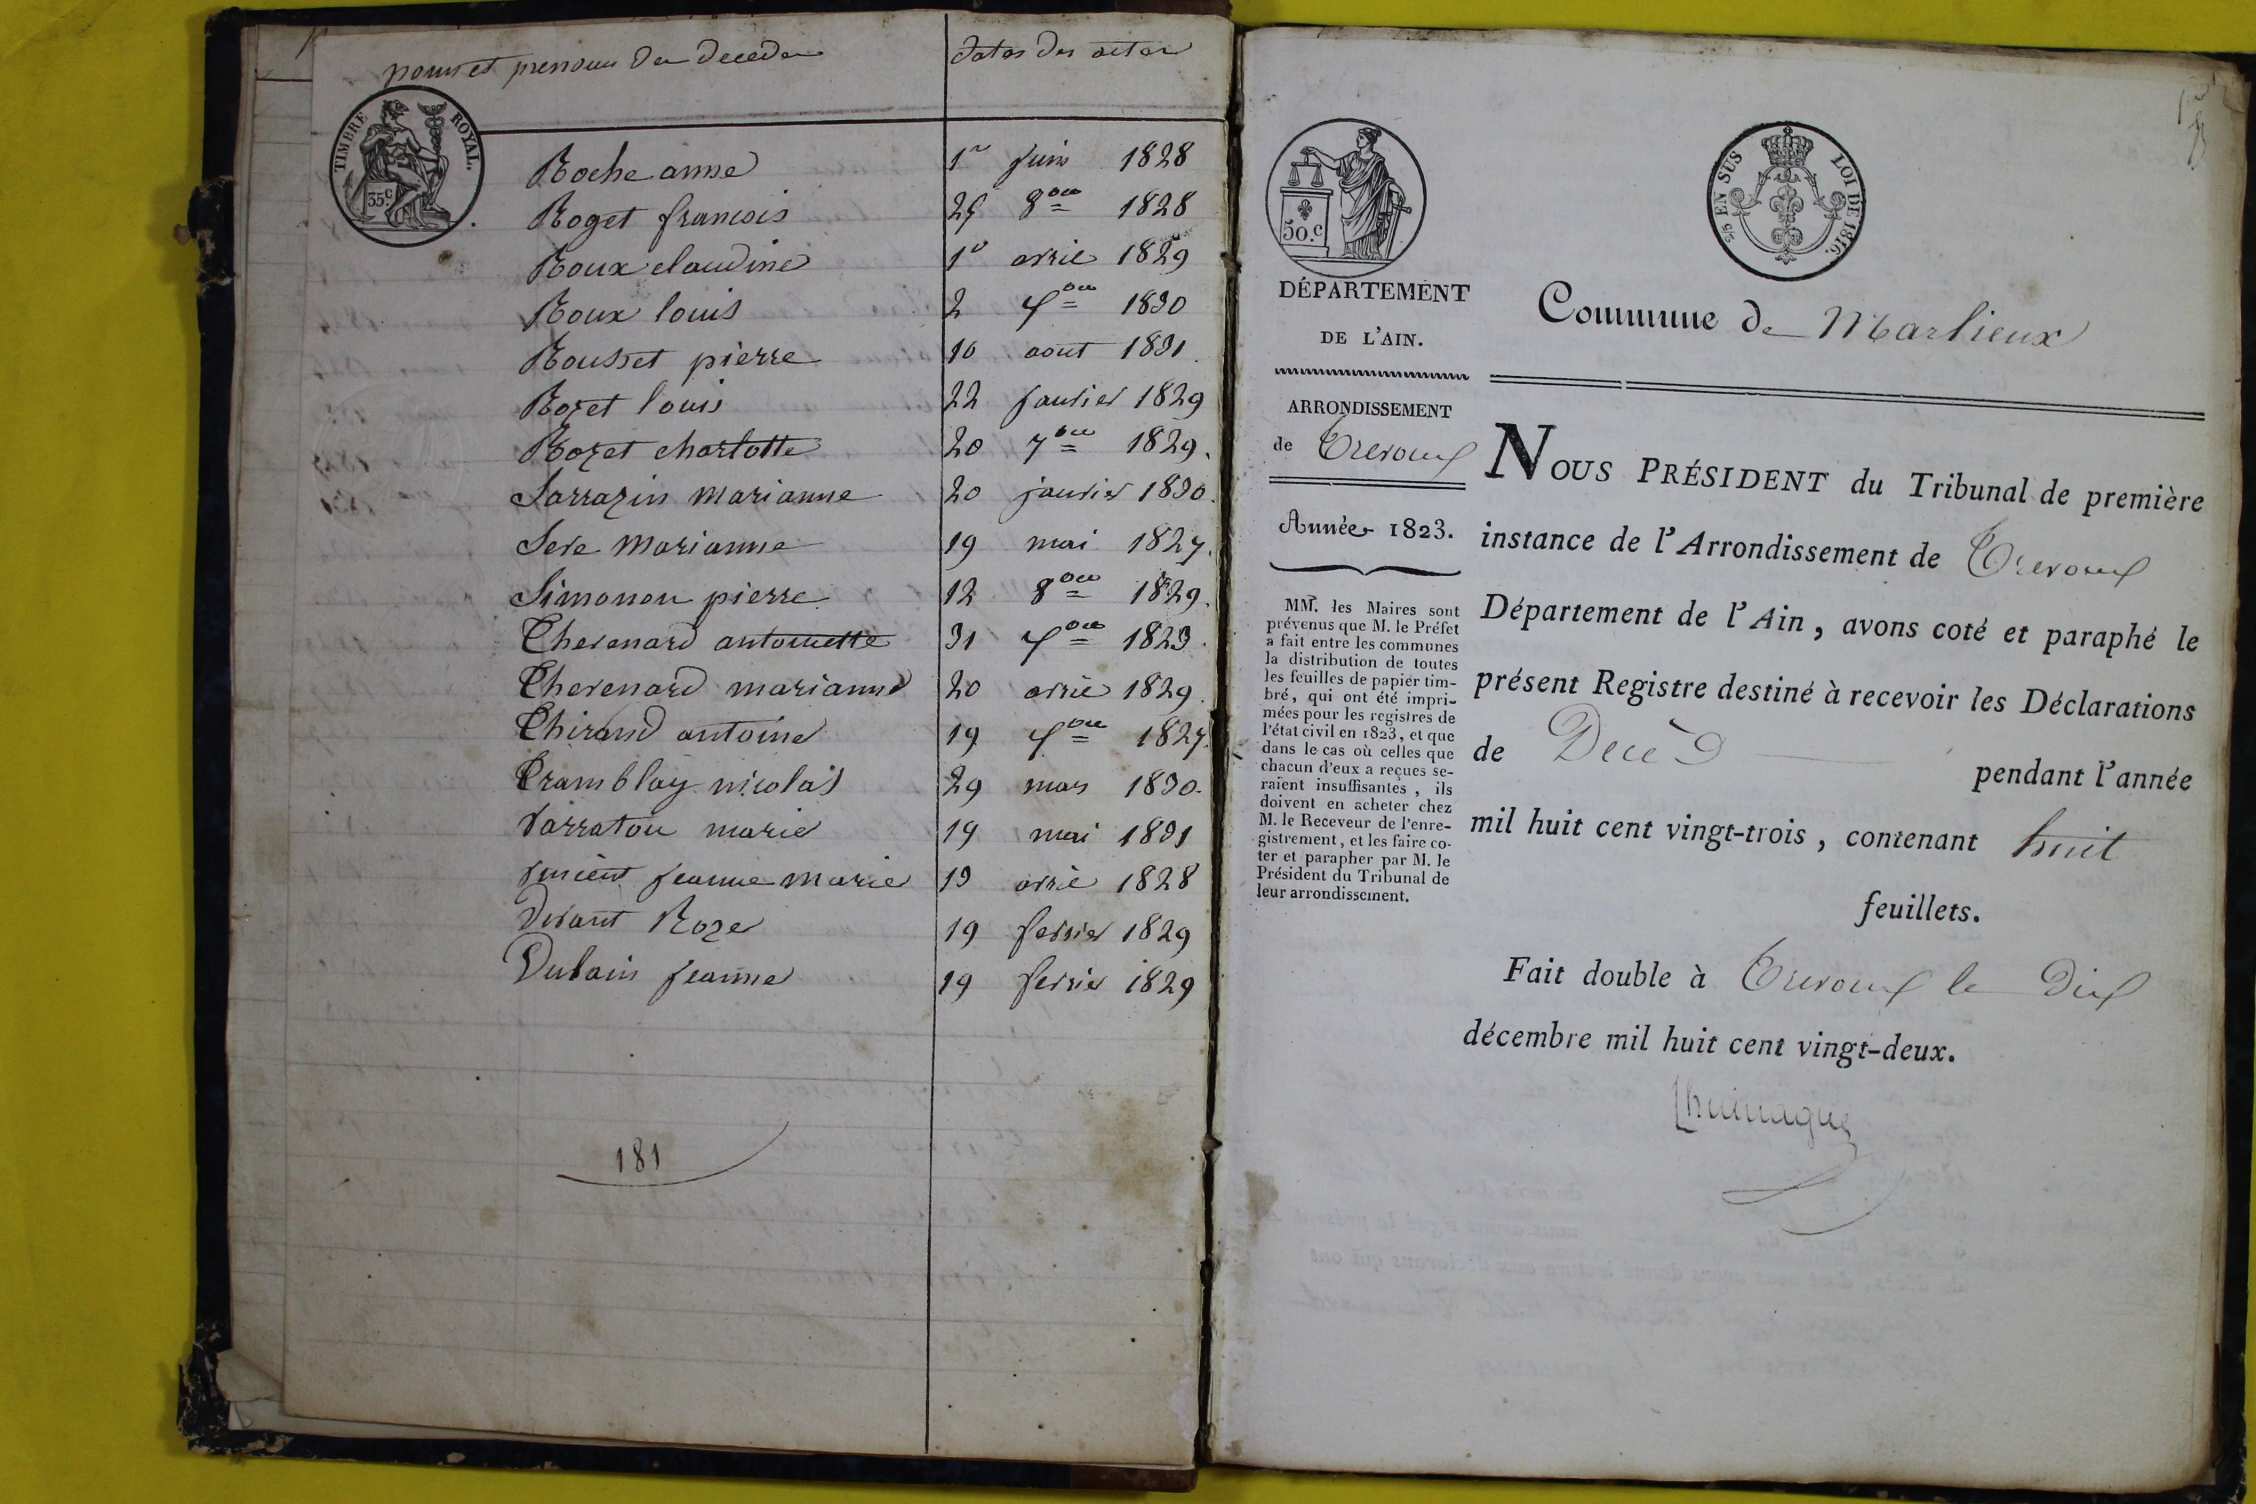 noms et prenoms des decedes
dates des actes
TIMBRE ROYAL.
35c
Roche anne 1er juin 1828
Roget francois 25 8bre 1828
Roux claudine 1er avril 1829
Roux louis 2 xbre 1830
Rousset pierre 10 aout 1831
Rozet louis 22 janvier 1829
Rozet charlotte 20 7bre 1829.
Sarrazin marianne 20 janvier 1830.
Seve marianne 19 mai 1827.
Simonon pierre 12 8bre 1829.
Thevenard antoinette 31 xbre 1823.
Thevenard marianne 20 avril 1829.
Thiraud antoine 19 xbre 1827.
Tramblay nicolas 29 mars 1830.
Varraton marie 19 mai 1831
vincent jeanne marie 13 avril 1828
Vivant Roze 19 fevrier 1829
Dubain jeanne 19 fevrier 1829
181
50.c
2/5 EN SUS LOI DE 1816.
DÉPARTEMENT
DE L'AIN.
Commune de Marlieux
ARRONDISSEMENT
de Trevoux
Année 1823.
MM. les Maires sont
prévenus que M. le Préfet
a fait entre les communes
la distribution de toutes
les feuilles de papier tim-
bré, qui ont été impri-
mées pour les registres de
l'état civil en 1823, et que
dans le cas où celles que
chacun d'eux a reçues se-
raient insuffisantes, ils
doivent en acheter chez
M. le Receveur de l'enre-
gistrement, et les faire co-
ter et parapher par M. le
Président du Tribunal de
leur arrondissement.
NOUS PRÉSIDENT du Tribunal de première
instance de l'Arrondissement de Trevoux
Département de l'Ain, avons coté et paraphé le
présent Registre destiné à recevoir les Déclarations
de Decès pendant l'année
mil huit cent vingt-trois, contenant huit
feuillets.
Fait double à Trevoux le Dix
décembre mil huit cent vingt-deux.